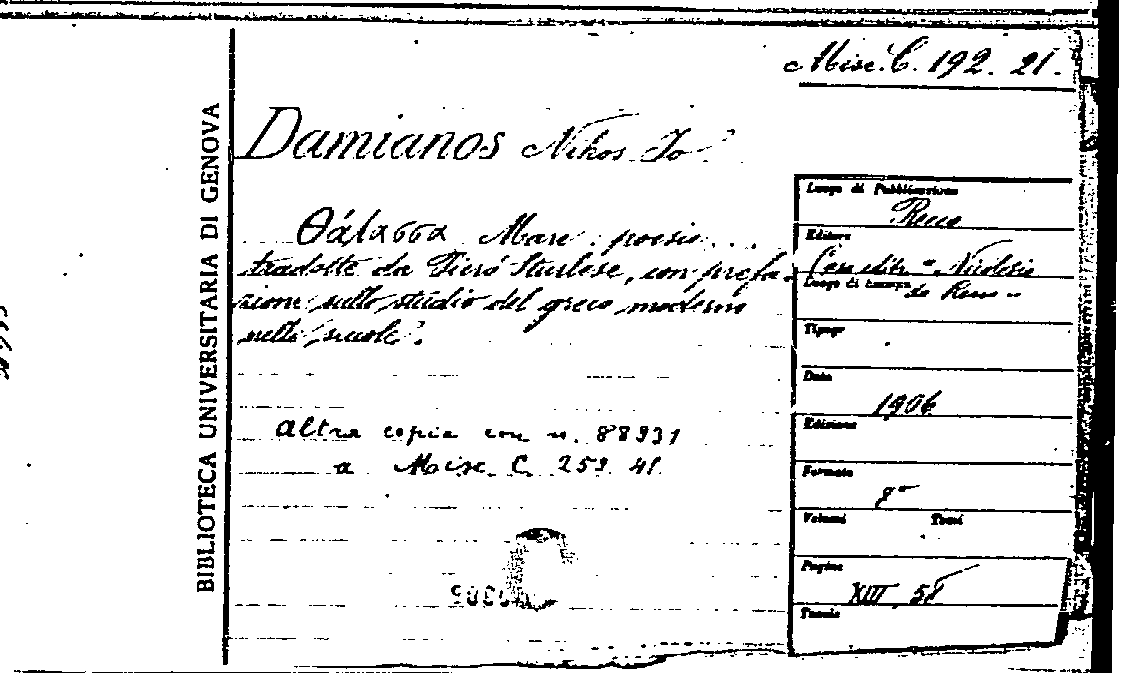 Misc. C. 192. 21.
BIBLIOTECA UNIVERSITARIA DI GENOVA
Damianos Nikos Io.
Θάλασσα Mare: poesie ...
tradotte da Pieró Sturlese, con prefa-
zione sullo studio del greco moderno
nelle scuole.
altra copia con n. 88931
a Misc. C. 259. 41.
Luogo di Pubblicazione
Recco
Editore
Casa editr. Nicolosio
Luogo di stampa
de Recco
Tipogr
Data
1906
Edizione
Formato
8°
Volumi Tomi
Pagine
XIII. 58
Tavole